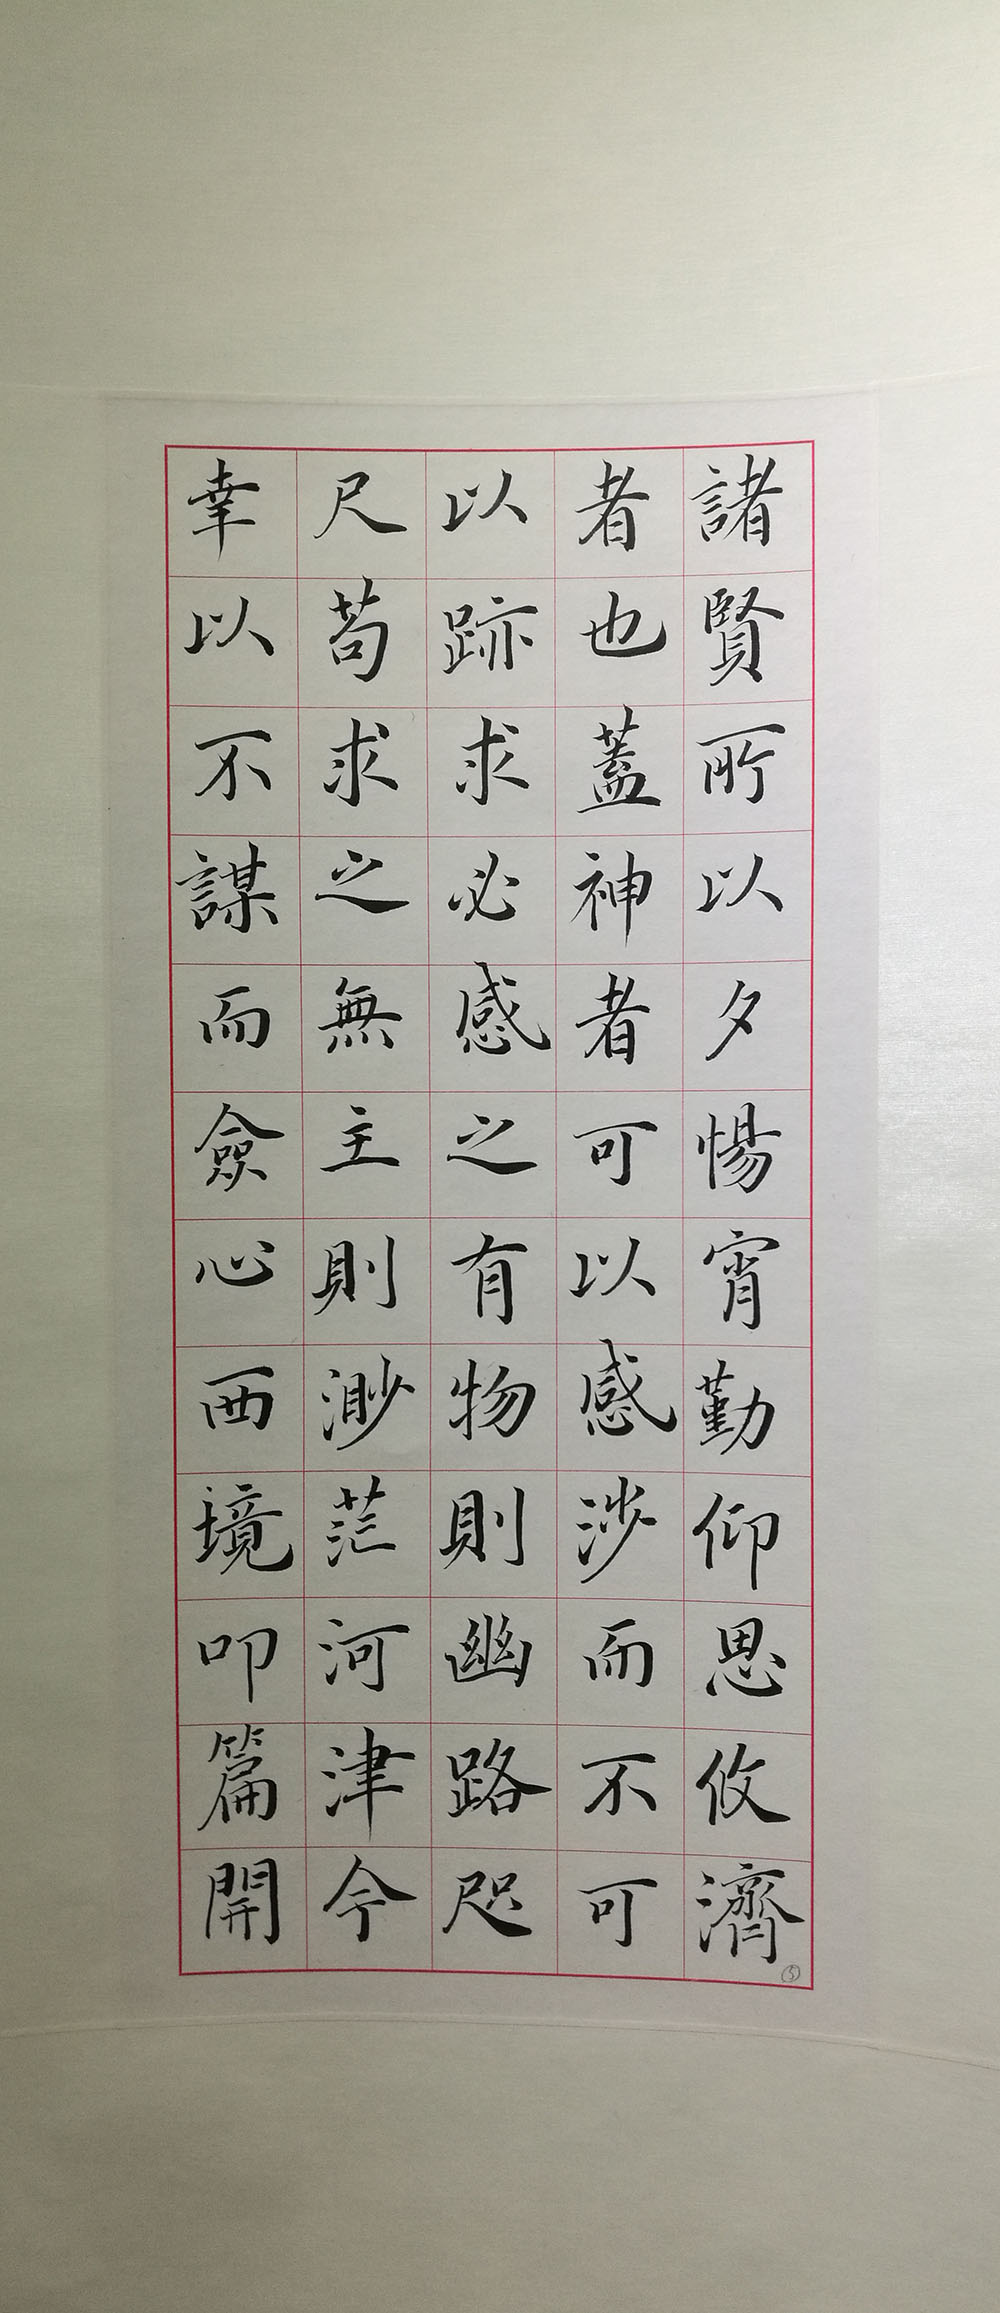 諸賢所以夕惕宵勤仰思攸濟
者也蓋神者可以感涉而不可
以跡求必感之有物則幽路咫
尺苟求之無主則渺茫河津今
幸以不謀而僉心西境叩篇開
⑤